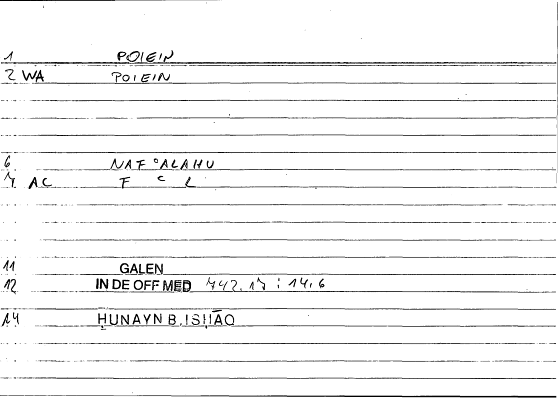 1 POIEIN
2 WA POIEIN
6 NAF ʿALAHU
7 AC F ʿ L
11 GALEN
12 IN DE OFF MED 442.17 : 14.6
14 ḤUNAYN B. ISḤĀQ